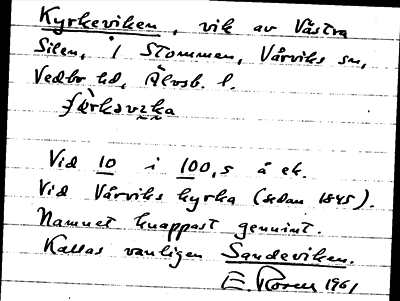 Kyrkeviken, vik av Västra
Silen, i Stommen, Vårviks sn,
Vedbo hd, Älvsb. l.
Vid 10 i 100,5 å ek.
Vid Vårviks kyrka (sedan 1845).
Namnet knappast genuint.
Kallas vanligen Sandeviken.
E. Rosell 1961